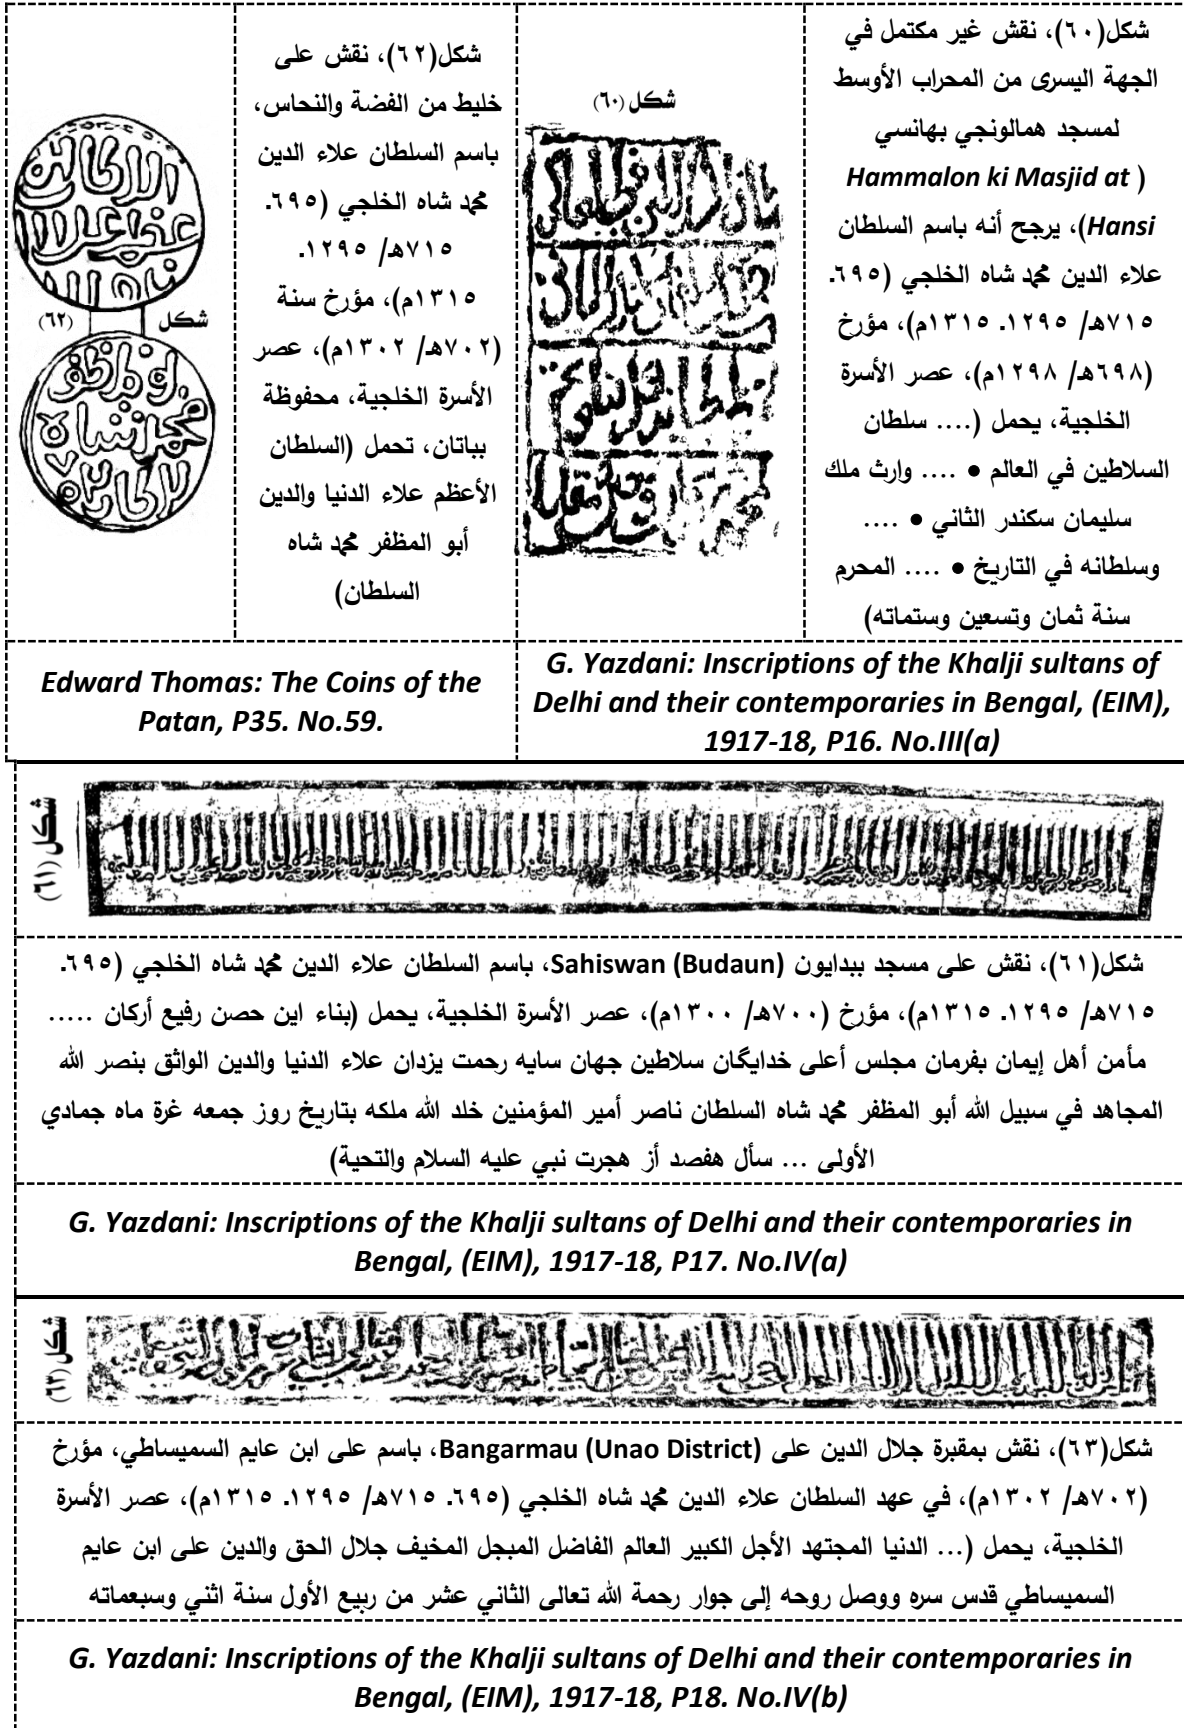 شكل(٦٠)، نقش غير مكتمل في
الجهة اليسرى من المحراب الأوسط
لمسجد همالونجي بهانسي
( Hammalon ki Masjid at
Hansi)، يرجح أنه باسم السلطان
علاء الدين محمد شاه الخلجي (٦٩٥.
٧١٥هـ/ ١٢٩٥. ١٣١٥م)، مؤرخ
(٦٩٨هـ/ ١٢٩٨م)، عصر الأسرة
الخلجية، يحمل (.... سلطان
السلاطين في العالم ● .... وارث ملك
سليمان سكندر الثاني ● ....
وسلطانه في التاريخ ● .... المحرم
سنة ثمان وتسعين وستماته)
شكل (٦٠)
شكل(٦٢)، نقش على
خليط من الفضة والنحاس،
باسم السلطان علاء الدين
محمد شاه الخلجي (٦٩٥.
٧١٥هـ/ ١٢٩٥.
١٣١٥م)، مؤرخ سنة
(٧٠٢هـ/ ١٣٠٢م)، عصر
الأسرة الخلجية، محفوظة
بباتان، تحمل (السلطان
الأعظم علاء الدنيا والدين
أبو المظفر محمد شاه
السلطان)
شكل (٦٢)
G. Yazdani: Inscriptions of the Khalji sultans of
Delhi and their contemporaries in Bengal, (EIM),
1917-18, P16. No.III(a)
Edward Thomas: The Coins of the
Patan, P35. No.59.
شكل (٦١)
شكل(٦١)، نقش على مسجد ببدايون Sahiswan (Budaun)، باسم السلطان علاء الدين محمد شاه الخلجي (٦٩٥.
٧١٥هـ/ ١٢٩٥. ١٣١٥م)، مؤرخ (٧٠٠هـ/ ١٣٠٠م)، عصر الأسرة الخلجية، يحمل (بناء اين حصن رفيع أركان .....
مأمن أهل إيمان بفرمان مجلس أعلى خدايگان سلاطين جهان سايه رحمت يزدان علاء الدنيا والدين الواثق بنصر الله
المجاهد في سبيل الله أبو المظفر محمد شاه السلطان ناصر أمير المؤمنين خلد الله ملكه بتاريخ روز جمعه غرة ماه جمادي
الأولى ... سأل هفصد أز هجرت نبي عليه السلام والتحية)
G. Yazdani: Inscriptions of the Khalji sultans of Delhi and their contemporaries in
Bengal, (EIM), 1917-18, P17. No.IV(a)
شكل (٦٣)
شكل(٦٣)، نقش بمقبرة جلال الدين على Bangarmau (Unao District)، باسم على ابن عايم السميساطي، مؤرخ
(٧٠٢هـ/ ١٣٠٢م)، في عهد السلطان علاء الدين محمد شاه الخلجي (٦٩٥. ٧١٥هـ/ ١٢٩٥. ١٣١٥م)، عصر الأسرة
الخلجية، يحمل (... الدنيا المجتهد الأجل الكبير العالم الفاضل المبجل المخيف جلال الحق والدين على ابن عايم
السميساطي قدس سره ووصل روحه إلى جوار رحمة الله تعالى الثاني عشر من ربيع الأول سنة اثني وسبعماته
G. Yazdani: Inscriptions of the Khalji sultans of Delhi and their contemporaries in
Bengal, (EIM), 1917-18, P18. No.IV(b)